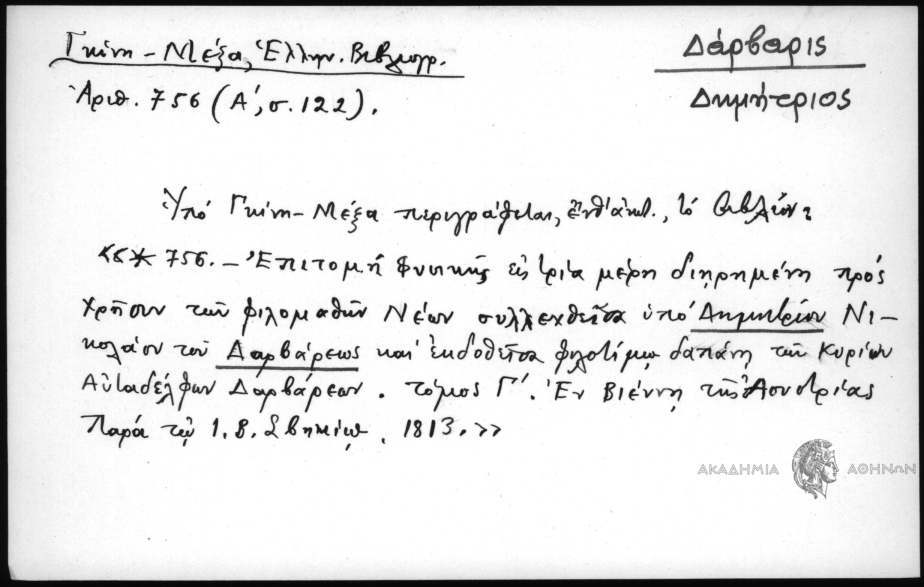 Γκίνη – Μέξα, Ἑλλην. Βιβλιογρ.
Δάρβαρις
Ἀριθ. 756 (Α΄, σ. 122).
Δημήτριος
Ὑπό Γκίνη – Μέξα περιγράφεται, ἐνθ' ἀνωτ., τό βιβλίον:
«* 756. – Ἐπιτομή Φυσικῆς εἰς τρία μέρη διῃρημένη πρός
χρῆσιν τῶν φιλομαθῶν Νέων συλλεχθεῖσα ὑπό Δημητρίου Νι-
κολάου τοῦ Δαρβάρεως καί ἐκδοθεῖσα φιλοτίμῳ δαπάνῃ τῶν Κυρίων
Αὐταδέλφων Δαρβάρεων. τόμος Γ΄. Ἐν Βιέννῃ τῆς Ἀουστρίας
Παρά τῷ Ι. Β. Σβηκίῳ. 1813.»
ΑΚΑΔΗΜΙΑ ΑΘΗΝΩΝ